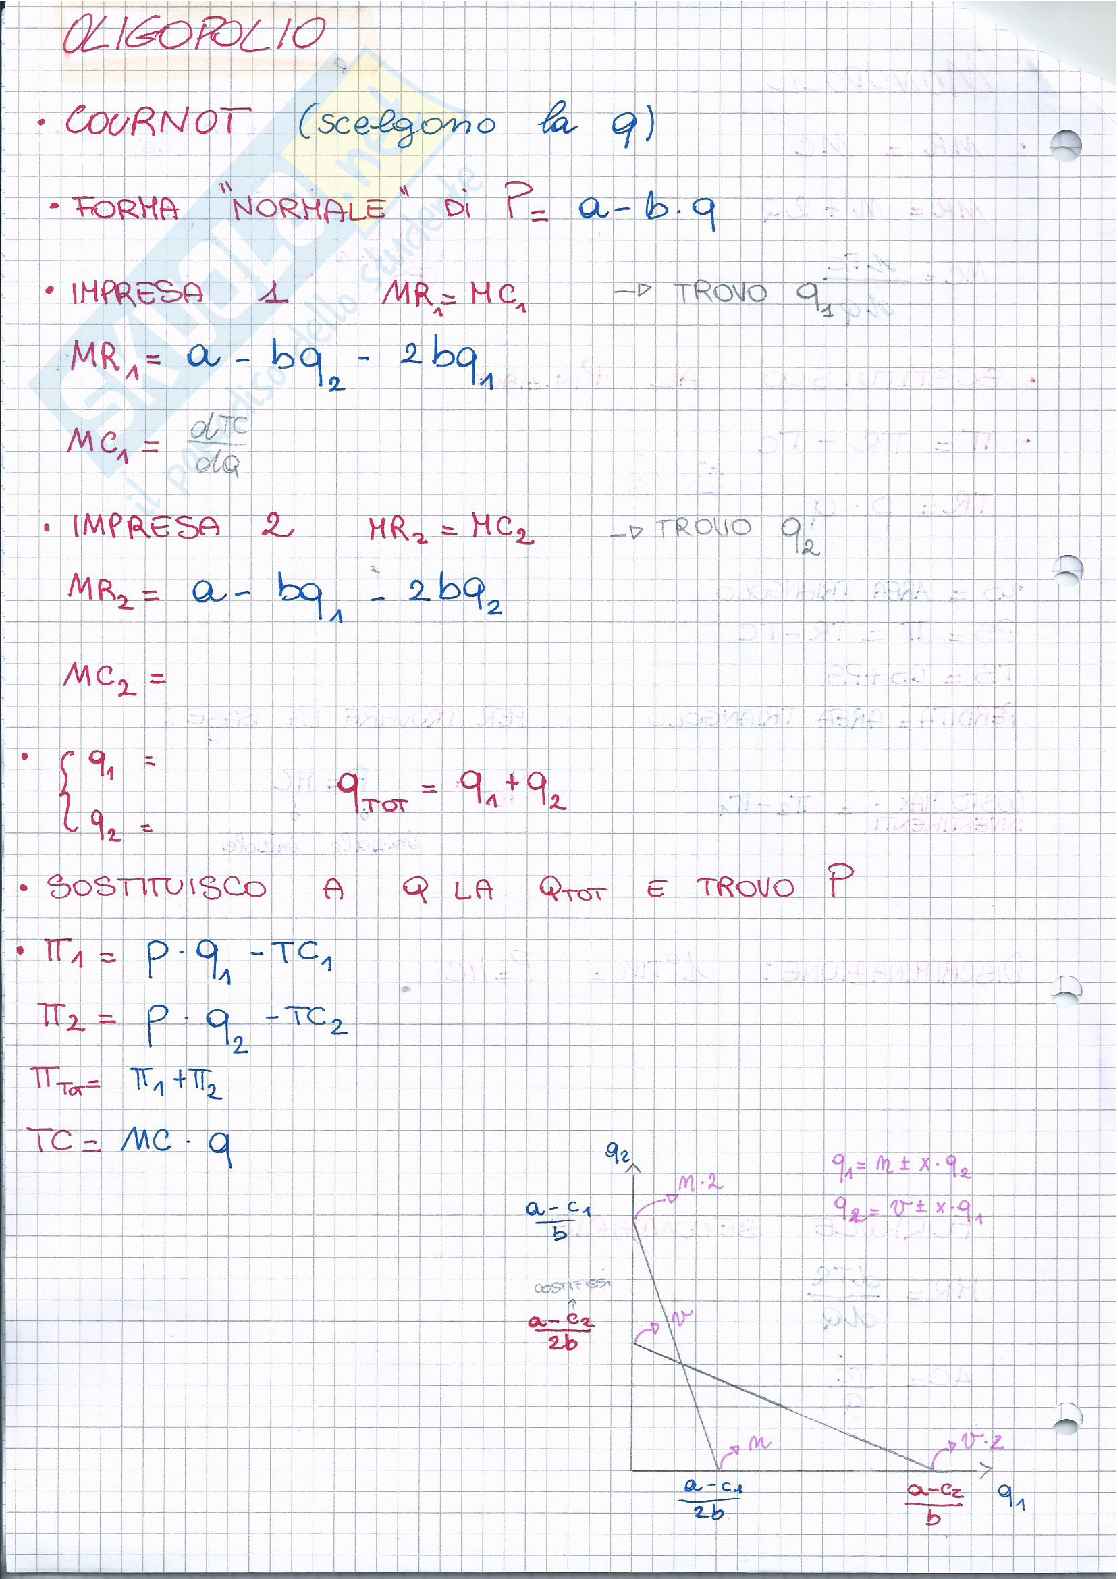 OLIGOPOLIO
• COURNOT (scelgono la q)
• FORMA "NORMALE" DI P = a - b · q
• IMPRESA 1 MR₁ = MC₁ → TROVO q₁
MR₁ = a - bq₂ - 2bq₁
MC₁ = dTC/dQ
• IMPRESA 2 MR₂ = MC₂ → TROVO q₂
MR₂ = a - bq₁ - 2bq₂
MC₂ =
• { q₁ =
q₂ =
q TOT = q₁ + q₂
• SOSTITUISCO A Q LA Q TOT E TROVO P
• π₁ = P · q₁ - TC₁
π₂ = P · q₂ - TC₂
π Tot = π₁ + π₂
TC = MC · q
q₂
q₁ = n ± x · q₂
n · 2
q₂ = v ± x · q₁
a - c₁ / b
a - c₂ / 2b
v
n
v · 2
a - c₁ / 2b
a - c₂ / b
q₁
SKUOLA.net
il paradiso dello studente